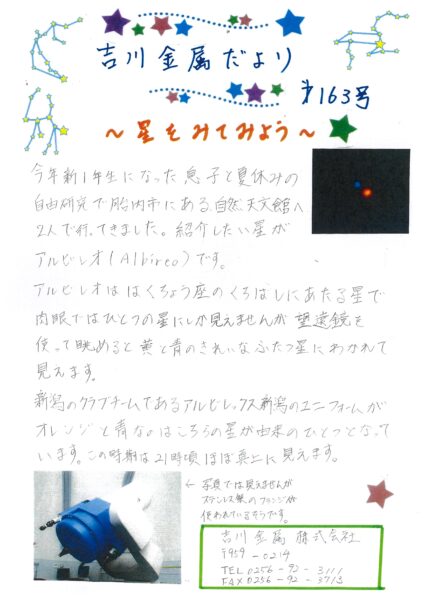 吉川金属だより
第163号
～星をみてみよう～
今年新1年生になった息子と夏休みの
自由研究で胎内市にある自然天文館へ
2人で行ってきました。紹介したい星が
アルビレオ(Albireo)です。
アルビレオははくちょう座のくちばしにあたる星で
肉眼ではひとつの星にしか見えませんが望遠鏡を
使って眺めると黄と青のきれいなふたつ星にわかれて
見えます。
新潟のクラブチームであるアルビレックス新潟のユニフォームが
オレンジと青なのはこちらの星が由来のひとつとなって
います。この時期は21時頃ほぼ真上に見えます。
←写真では見えませんが
ステンレス製のフランジが
使われているそうです。
吉川金属株式会社
〒959-0214
TEL 0256-92-3111
FAX 0256-92-3713